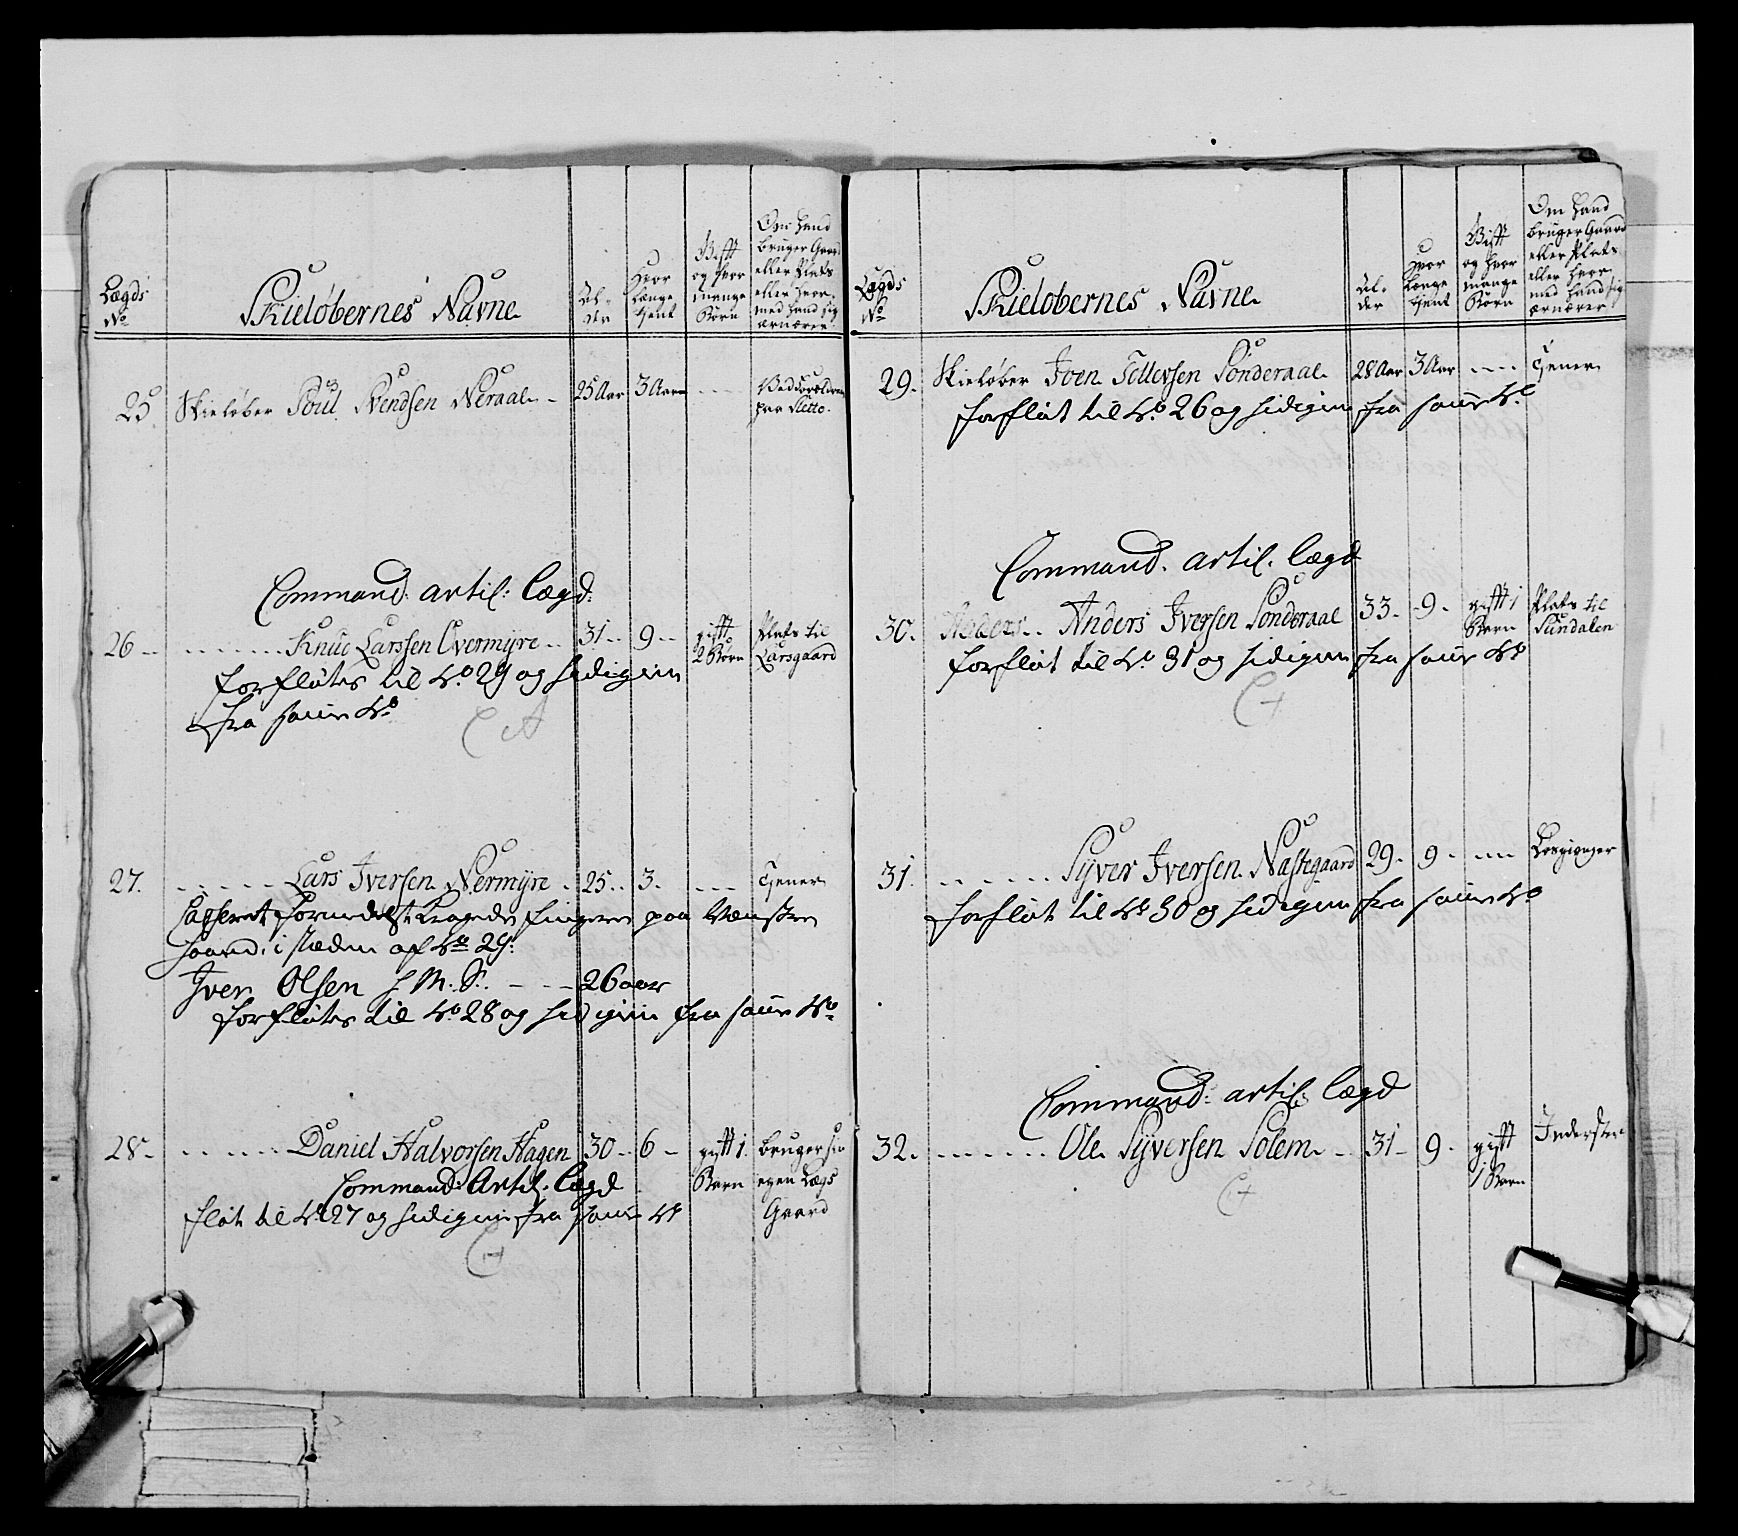 Lægds No
Skieløbernes Navne
Al-
der
Hvor
længe
tjent
Gift
og hvor
mange
Børn
Om hand
bruger Gaard
eller Plats
eller hvor-
med hand sig
ernærer
25. Skieløber Poul Svendsen Neraal - 25 Aar 3 Aar - - -
paa Sletto.
Command: artil: Lægd:
26 - - - - - - - Knud Larssen Overmyre - - 31 - - 9 - - gift 2 Børn Plats til Larsgaard
forfløtes til No 29 og hidigien
fra samme No
27. - - - - - Lars Iversen Nermyre - 25 - - 3. - - - Tjener
Casseret formedelst Fingeren paa Venstre
Haand. i stæden af No 29.
Iver Olsen S. M. S. - - - 26 aar
forfløtes til No 28 og hidigien fra samme No
28. - - - - - - Daniel Halvorsen Hagen 30 - - 6 - gift 1 Barn bruger sin egen Lægs Gaard
Command: Artil. Lægd
fløt til No 27 og hidigien fra samme No
Lægds No
Skieløbernes Navne
Al-
der
Hvor
længe
tjent
Gift
og hvor
mange
Børn
Om hand
bruger Gaard
eller Plats
eller hvor-
med hand sig
ernærer
29. Skieløber Iver Tollersen Sønderaal 28 Aar 3 Aar - - - Tjener
forfløt til No 26 og hidigien fra samme No
Command. artil. Lægd
30. Anders Iversen Sønderaal 33 - - 9 - gift 1 Barn Plats til Sundalen
forfløt til No 31 og hidigien fra samme No
31. - - - - - - Syver Iversen Nastegaard 29 - 9 - - - - Løsgienger
forfløt til No 30 og hidigien fra samme No
Command: artil: Lægd
32. - - - - - - - Ole Syversen Solem - - 31 - 9 - gift 1 Barn Inderster